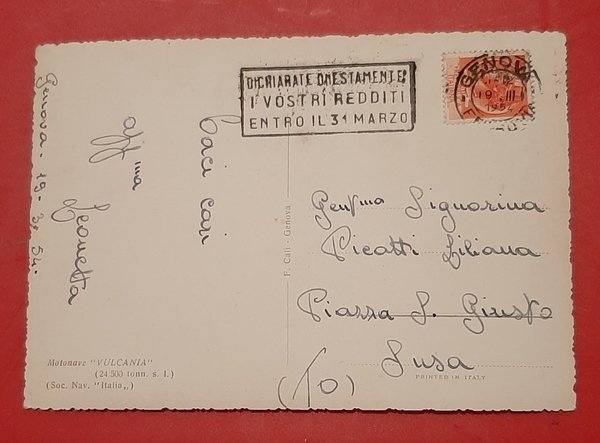 DICHIARATE ONESTAMENTE
I VOSTRI REDDITI
ENTRO IL 31 MARZO
GENOVA
19 III
1954
FERROVIA
Genova - 19-3-54.
Baci cari
aff.ma
Leonetta
Gent.ma Signorina
Picatti Liliana
Piazza S. Giusto
Susa
(TO)
F. Calì - Genova
Motonave "VULCANIA"
(24.500 tonn. s. l.)
(Soc. Nav. "Italia,,)
PRINTED IN ITALY